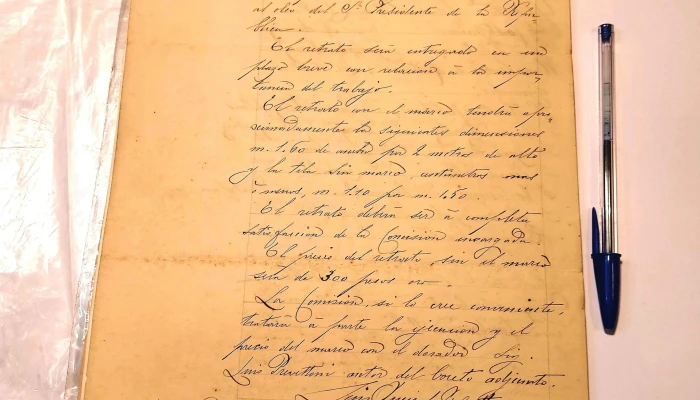 al oleo del Sr. Presidente de la Repú
blica.
El retrato será entregado en un
plazo breve con relacion á la impor,
tancia del trabajo.
El retrato con el marco tendrá apro,
scimadamente las siguientes dimensiones
m. 1.60 de ancho por 2 metros de alto
y la tela sin marco, centimetros mas
ó menos, m. 1.10 por m. 1.50.
El retrato debera ser á completa
satisfaccion de la Comision encargada.
El precio del retrato, sin el marco
sera de 300 pesos oro.
La Comision, si lo cree conveniente,
tratará á parte la ejecucion y el
precio del marco con el dorador Sig.
Luis Previttoni autor del boceto adjunto.
Luis